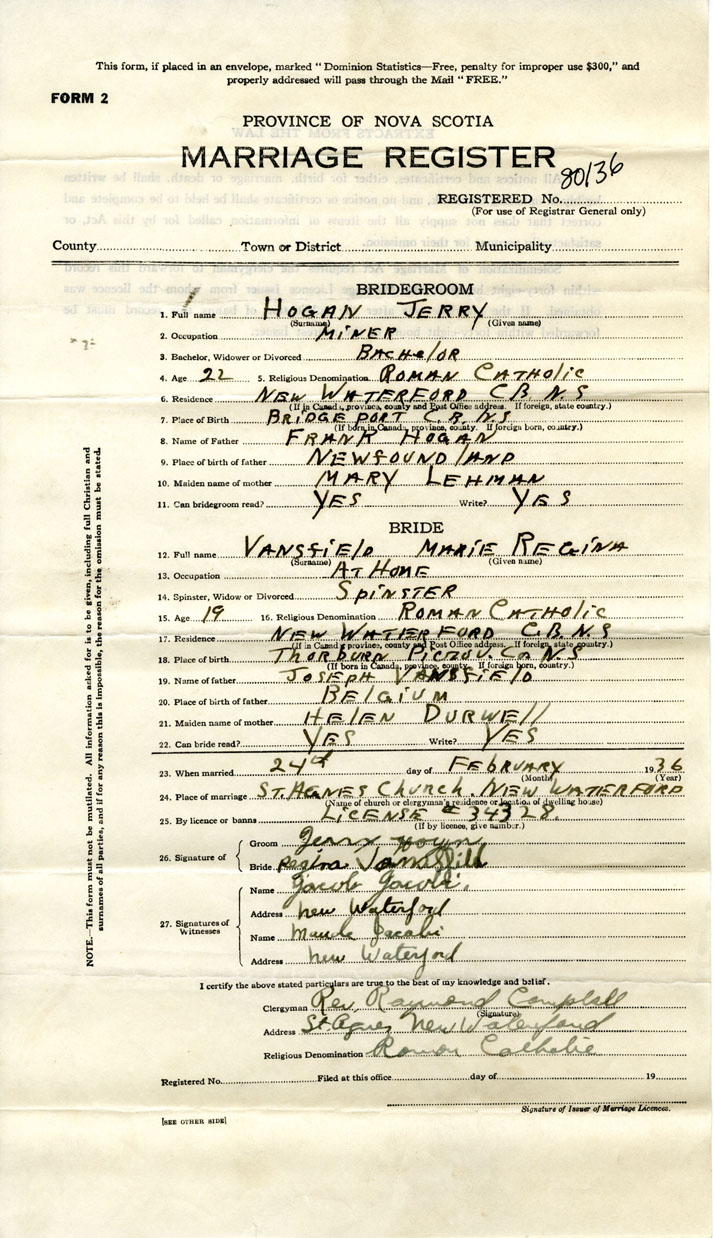 This form, if placed in an envelope, marked "Dominion Statistics—Free, penalty for improper use $300," and
properly addressed will pass through the Mail "FREE."
FORM 2
PROVINCE OF NOVA SCOTIA
MARRIAGE REGISTER
80136
REGISTERED No.
(For use of Registrar General only)
County Town or District Municipality
BRIDEGROOM
1. Full name HOGAN JERRY
(Surname) (Given name)
2. Occupation MINER
3. Bachelor, Widower or Divorced BACHELOR
4. Age 22 5. Religious Denomination ROMAN CATHOLIC
6. Residence NEW WATERFORD C.B. N.S
(If in Canada, province, county and Post Office address. If foreign, state country.)
7. Place of Birth BRIDGEPORT C.B. N.S
(If born in Canada, province, county. If foreign born, country.)
8. Name of Father FRANK HOGAN
9. Place of birth of father NEWFOUNDLAND
10. Maiden name of mother MARY LEHMAN
11. Can bridegroom read? YES Write? YES
BRIDE
12. Full name VANSFIELD MARIE REGINA
(Surname) (Given name)
13. Occupation AT HOME
14. Spinster, Widow or Divorced SPINSTER
15. Age 19 16. Religious Denomination ROMAN CATHOLIC
17. Residence NEW WATERFORD C.B. N.S
(If in Canada province, county and Post Office address. If foreign, state country.)
18. Place of birth THORBURN PICTOU. Co N.S
(If born in Canada, province, county. If foreign born, country.)
19. Name of father JOSEPH VANSFIELD
20. Place of birth of father BELGIUM
21. Maiden name of mother HELEN DURWELL
22. Can bride read? YES Write? YES
23. When married 24th day of FEBRUARY 1936
(Month) (Year)
24. Place of marriage ST. AGNES CHURCH. NEW WATERFORD
(Name of church or clergyman's residence or location of dwelling house)
25. By licence or banns LICENSE # 34328.
(If by licence, give number.)
26. Signature of
Groom Jerry
Bride Regina
27. Signatures of Witnesses
Name Jacob
Address New Waterford
Name
Address New Waterford
I certify the above stated particulars are true to the best of my knowledge and belief.
Clergyman Rev. Raymond Campbell
(Signature)
Address St Agnes New Waterford
Religious Denomination Roman Catholic
Registered No. Filed at this office day of 19
Signature of Issuer of Marriage Licences.
[SEE OTHER SIDE]
NOTE.—This form must not be mutilated. All information asked for is to be given, including full Christian and
surnames of all parties, and if for any reason this is impossible, the reason for the omission must be stated.